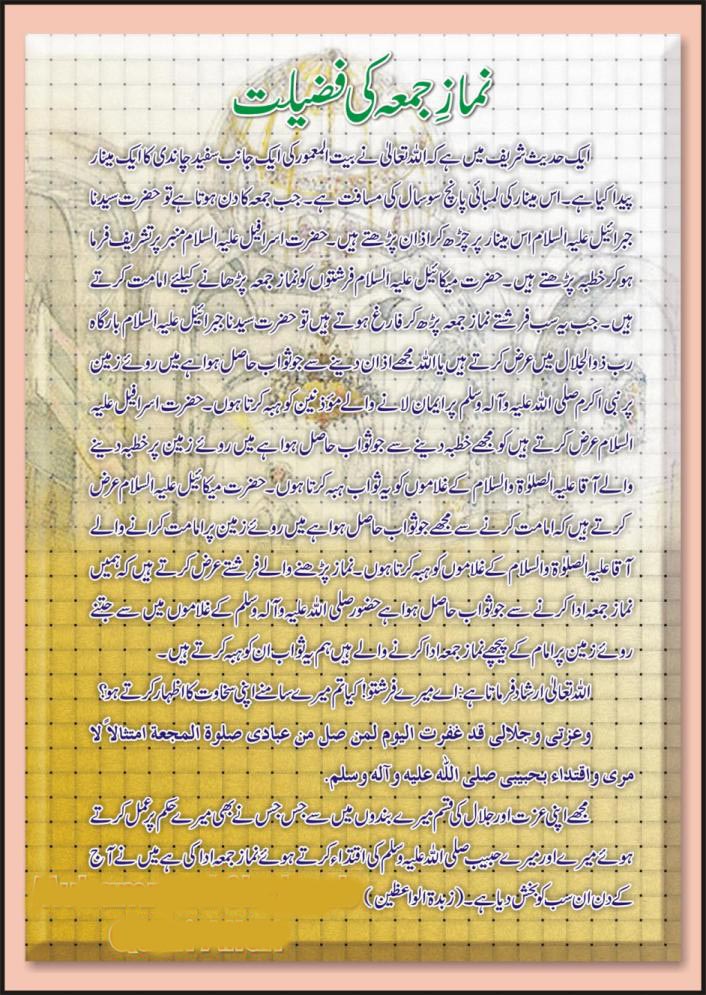 نمازِ جمعہ کی فضیلت
ایک حدیث شریف میں ہے کہ اللہ تعالیٰ نے بیت المعمور کی ایک جانب سفید چاندی کا ایک مینار
پیدا کیا ہے۔ اس مینار کی لمبائی پانچ سو سال کی مسافت ہے۔ جب جمعہ کا دن ہوتا ہے تو حضرت سیدنا
جبرائیل علیہ السلام اس مینار پر چڑھ کر اذان پڑھتے ہیں۔ حضرت اسرافیل علیہ السلام منبر پر تشریف فرما
ہو کر خطبہ پڑھتے ہیں۔ حضرت میکائیل علیہ السلام فرشتوں کو نماز جمعہ پڑھانے کیلئے امامت کرتے
ہیں۔ جب یہ سب فرشتے نماز جمعہ پڑھ کر فارغ ہوتے ہیں تو حضرت سیدنا جبرائیل علیہ السلام بارگاہ
رب ذوالجلال میں عرض کرتے ہیں یا اللہ مجھے اذان دینے سے جو ثواب حاصل ہوا ہے میں روئے زمین
پر نبی اکرم صلی اللہ علیہ وآلہ وسلم پر ایمان لانے والے مؤذنین کو ہبہ کرتا ہوں۔ حضرت اسرافیل علیہ
السلام عرض کرتے ہیں کو مجھے خطبہ دینے سے جو ثواب حاصل ہوا ہے میں روئے زمین پر خطبہ دینے
والے آقا علیہ الصلوٰۃ والسلام کے غلاموں کو یہ ثواب ہبہ کرتا ہوں۔ حضرت میکائیل علیہ السلام عرض
کرتے ہیں کہ امامت کرنے سے مجھے جو ثواب حاصل ہوا ہے میں روئے زمین پر امامت کرانے والے
آقا علیہ الصلوٰۃ والسلام کے غلاموں کو ہبہ کرتا ہوں۔ نماز پڑھنے والے فرشتے عرض کرتے ہیں کہ ہمیں
نماز جمعہ ادا کرنے سے جو ثواب حاصل ہوا ہے حضور صلی اللہ علیہ وآلہ وسلم کے غلاموں میں سے جتنے
روئے زمین پر امام کے پیچھے نماز جمعہ ادا کرنے والے ہیں ہم یہ ثواب ان کو ہبہ کرتے ہیں۔
اللہ تعالیٰ ارشاد فرماتا ہے: اے میرے فرشتو! کیا تم میرے سامنے اپنی سخاوت کا اظہار کرتے ہو؟
وعزتی وجلالی قد غفرت الیوم لمن صل من عبادی صلوة المجعة امتثالاً لا
مری واقتداء بحبیبی صلی اللّٰہ علیه وآله وسلم.
مجھے اپنی عزت اور جلال کی قسم میرے بندوں میں سے جس جس نے بھی میرے حکم پر عمل کرتے
ہوئے میرے اور میرے حبیب صلی اللہ علیہ وسلم کی اقتداء کرتے ہوئے نماز جمعہ ادا کی ہے میں نے آج
کے دن ان سب کو بخش دیا ہے۔ (زبدۃ الواعظین)